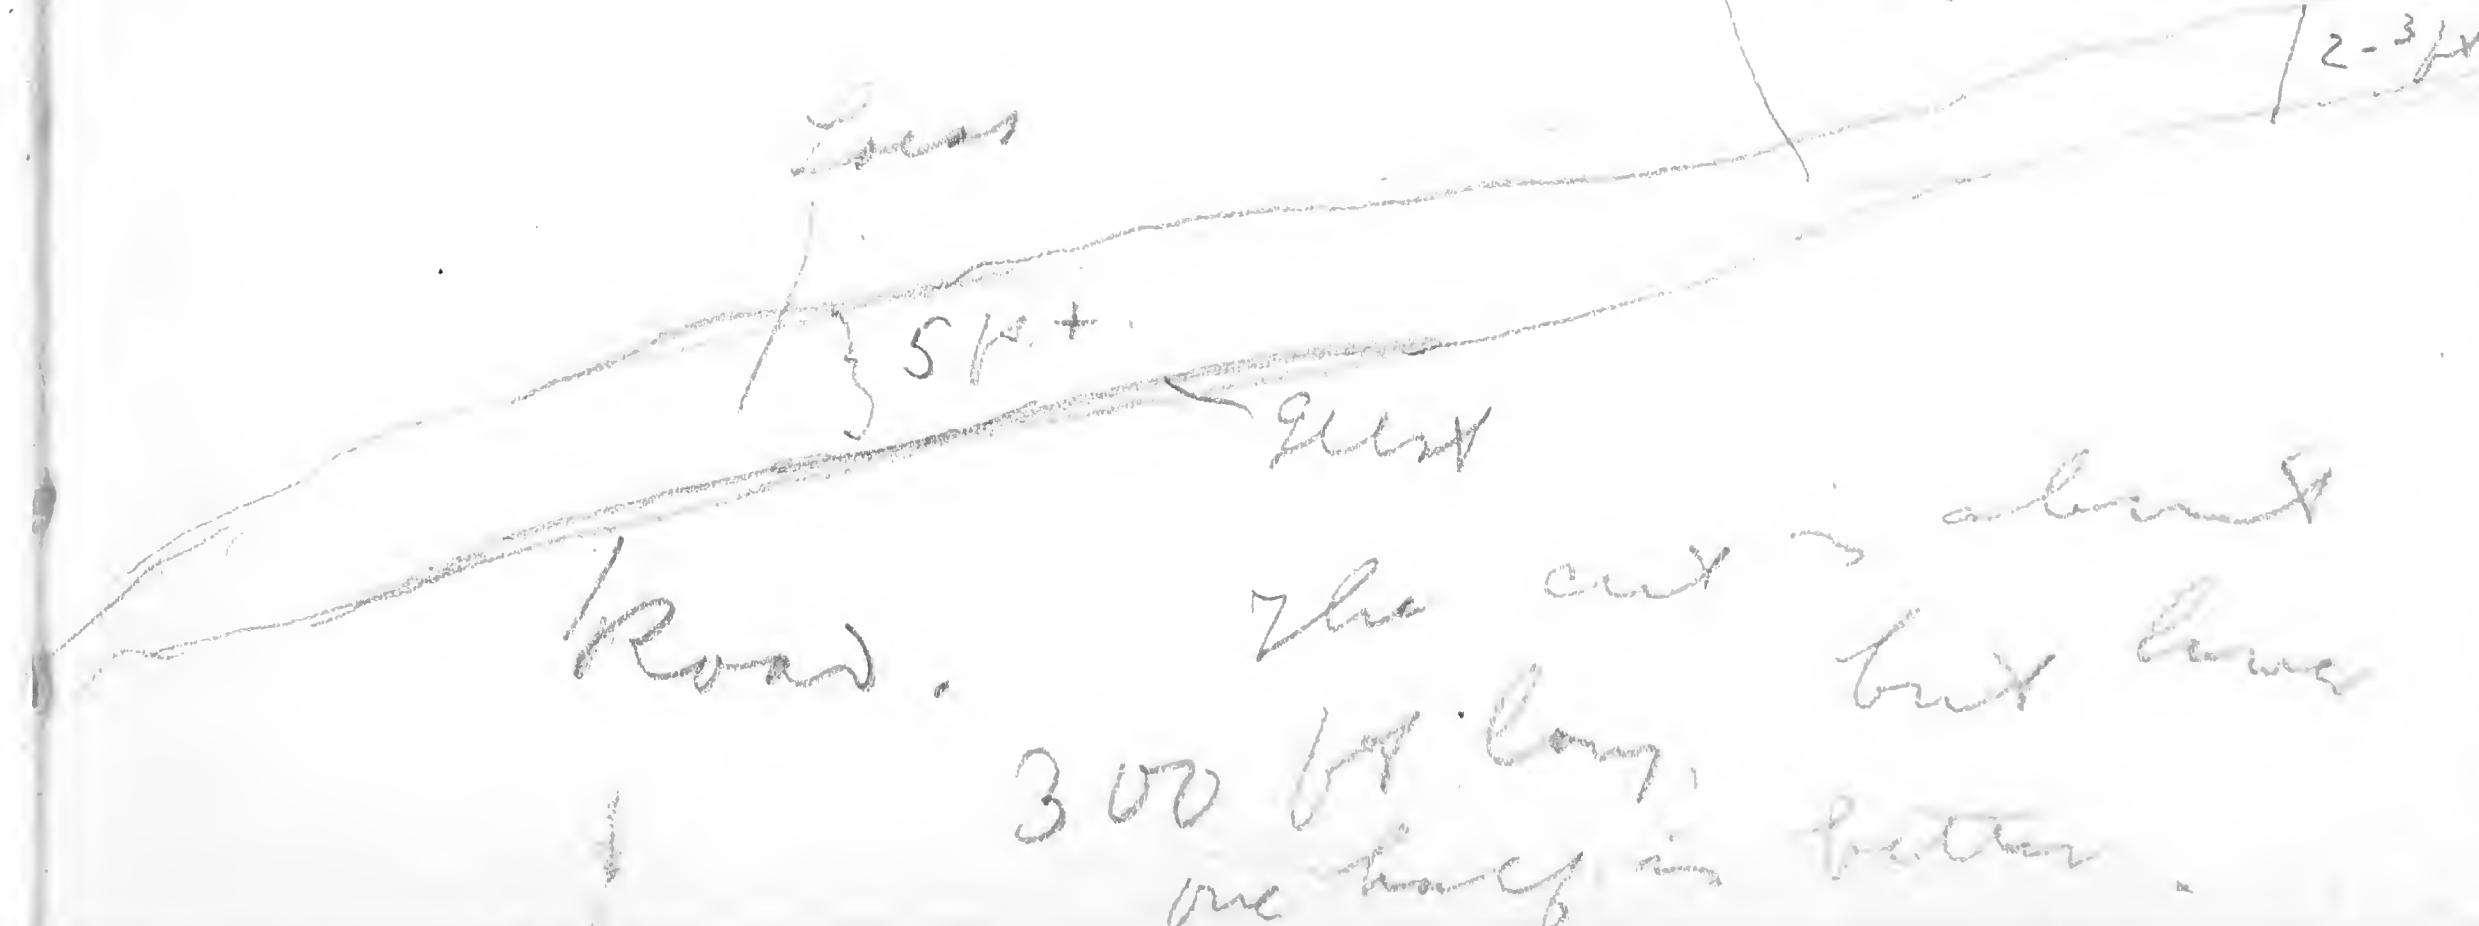 2-3 ft
Loess
5 ft. +
Road.
The cut is about
300 ft long, but lower
one half is better.